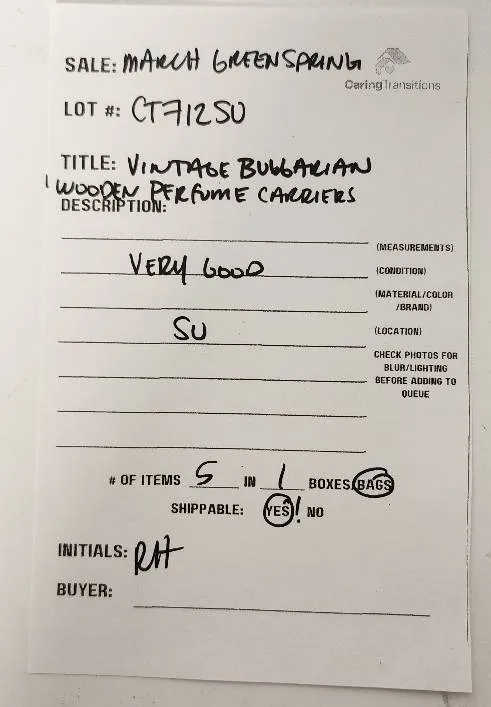 SALE: MARCH GREENSPRING
CaringTransitions
LOT #: CT712SU
TITLE: VINTAGE BULGARIAN
WOODEN PERFUME CARRIERS
DESCRIPTION:
(MEASUREMENTS)
VERY GOOD (CONDITION)
(MATERIAL/COLOR
/BRAND)
SU (LOCATION)
CHECK PHOTOS FOR
BLUR/LIGHTING
BEFORE ADDING TO
QUEUE
# OF ITEMS 5 IN 1 BOXES/BAGS
SHIPPABLE: YES! NO
INITIALS: RH
BUYER: